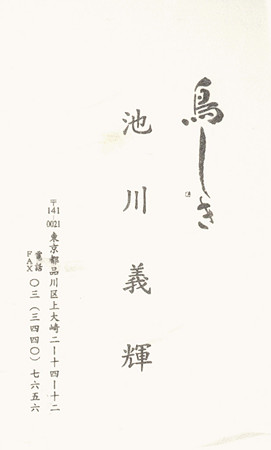 鳥しき
池川義輝
〒141-0021 東京都品川区上大崎二ー十四ー十二
電話 FAX 〇三(三四四〇)七六五六